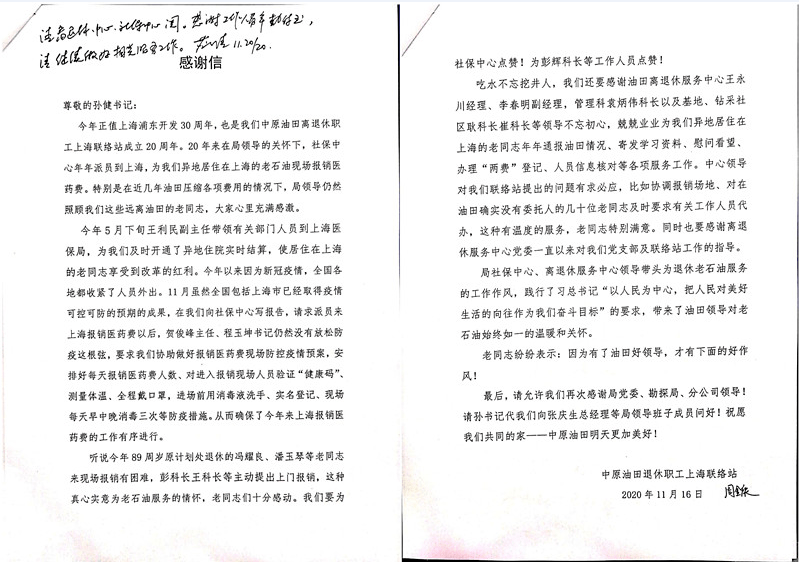 感谢信
尊敬的孙健书记：
今年正值上海浦东开发 30 周年，也是我们中原油田离退休职
工上海联络站成立 20 周年。20 年来在局领导的关怀下，社保中
心年年派员到上海，为我们异地居住在上海的老石油现场报销医
药费。特别是在近几年油田压缩各项费用的情况下，局领导仍然
照顾我们这些远离油田的老同志，大家心里充满感激。
今年 5 月下旬王利民副主任带领有关部门人员到上海医
保局，为我们及时开通了异地住院实时结算，使居住在上海
的老同志享受到改革的红利。今年以来因为新冠疫情，全国各
地都收紧了人员外出。11 月虽然全国包括上海市已经取得疫情
可控可防的预期的成果，在我们向社保中心写报告，请求派员来
上海报销医药费以后，贺俊峰主任、程玉坤书记仍然没有放松防
疫这根弦，要求我们协助做好报销医药费现场防控疫情预案，安
排好每天报销医药费人数、对进入报销现场人员验证“健康码”、
测量体温、全程戴口罩，进场前用消毒液洗手、实名登记、现场
每天早中晚消毒三次等防疫措施。从而确保了今年来上海报销医
药费的工作有序进行。
听说今年 89 周岁原计划处退休的冯耀良、潘玉琴等老同志
来现场报销有困难，彭科长王科长等主动提出上门报销，这种
真心实意为老石油服务的情怀，老同志们十分感动。我们要为
社保中心点赞！为彭辉科长等工作人员点赞！
吃水不忘挖井人，我们还要感谢油田离退休服务中心王永
川经理、李春明副经理，管理科袁炳伟科长以及基地、钻采社
区耿科长崔科长等领导不忘初心，兢兢业业为我们异地居住在
上海的老同志年年通报油田情况、寄发学习资料、慰问看望、
办理“两费”登记、人员信息核对等各项服务工作。中心领导
对我们联络站提出的问题有求必应，比如协调报销场地、对在
油田确实没有委托人的几十位老同志及时要求有关工作人员代
办，这种有温度的服务，老同志特别满意。同时也要感谢离退
休服务中心党委一直以来对我们党支部及联络站工作的指导。
局社保中心、离退休服务中心领导带头为退休老石油服务
的工作作风，践行了习总书记“以人民为中心，把人民对美好
生活的向往作为我们奋斗目标”的要求，带来了油田领导对老
石油始终如一的温暖和关怀。
老同志纷纷表示：因为有了油田好领导，才有下面的好作
风！
最后，请允许我们再次感谢局党委、勘探局、分公司领导！
请孙书记代我们向张庆生总经理等局领导班子成员问好！祝愿
我们共同的家——中原油田明天更加美好！
中原油田退休职工上海联络站
2020 年 11 月 16 日